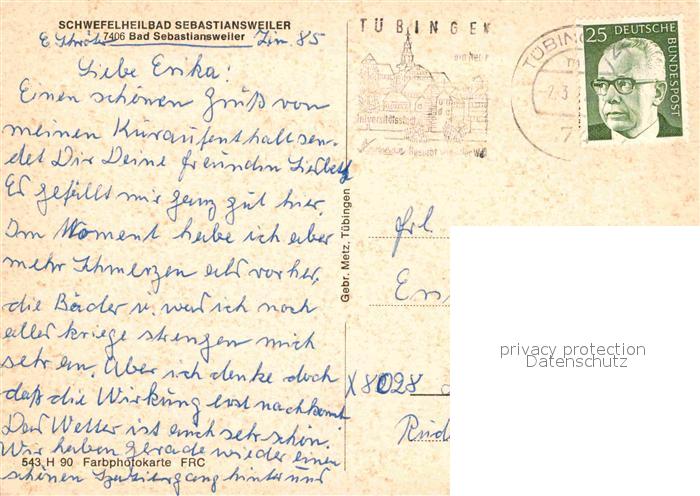 SCHWEFELHEILBAD SEBASTIANSWEILER
7406 Bad Sebastiansweiler
Zim. 85
Liebe Erika!
Einen schönen Gruß von
meinen Kuraufenthalt sen-
det Dir Deine Freundin Liesbeth
Es gefällt mir ganz gut hier,
Im Moment habe ich aber
mehr Schmerzen als vorher,
die Bäder u. was ich noch
alles kriege strengen mich
sehr an. Aber ich denke doch
daß die Wirkung erst nachkommt
Das Wetter ist auch sehr schön.
Wir haben gerade wieder einen
schönen Spaziergang hinter und
543 H 90 Farbphotokarte FRC
Gebr. Metz, Tübingen
TÜBINGEN
Universitätsstadt
TÜBIN
25 DEUTSCHE BUNDESPOST
Frl.
X8028
privacy protection
Datenschutz